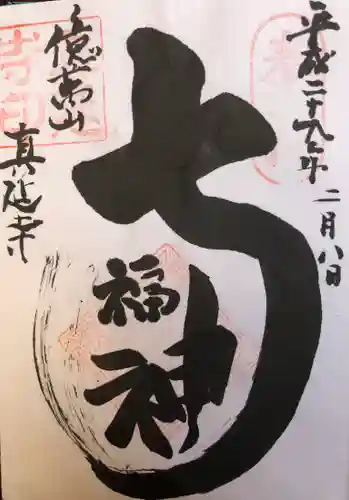 平成二十九年二月八日
七福神
億萬山
真延寺